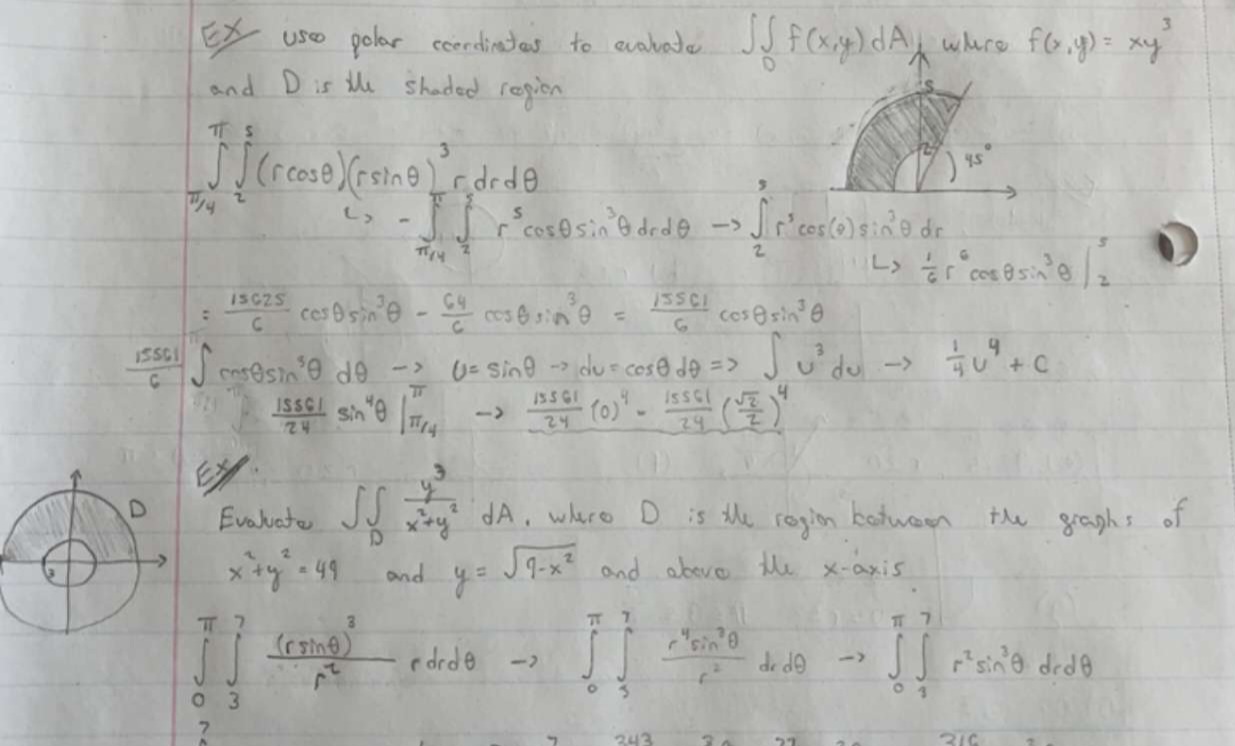 EX use polar coordinates to evaluate ∫∫_D f(x,y) dA, where f(x,y) = xy³
and D is the shaded region
5
2
45°
∫_{π/4}^{π} ∫_2^5 (r cosθ)(r sinθ)³ r dr dθ
↳ - ∫_{π/4}^{π} ∫_2^5 r⁵ cosθ sin³θ dr dθ → ∫_2^5 r⁵ cos(θ) sin³θ dr
↳ 1/6 r⁶ cosθ sin³θ |_2^5
= 15625/6 cosθ sin³θ - 64/6 cosθ sin³θ = 15561/6 cosθ sin³θ
15561/6 ∫ cosθ sin³θ dθ → U = sinθ → du = cosθ dθ => ∫ u³ du → 1/4 u⁴ + C
15561/24 sin⁴θ |_{π/4}^{π} → 15561/24 (0)⁴ - 15561/24 (√2/2)⁴
EX.
D
3
Evaluate ∫∫_D y³/(x²+y²) dA, where D is the region between the graphs of
x²+y² = 49 and y = √(9-x²) and above the x-axis.
∫_0^π ∫_3^7 (r sinθ)³/r² r dr dθ → ∫_0^π ∫_3^7 r⁴ sin³θ/r² dr dθ → ∫_0^π ∫_3^7 r² sin³θ dr dθ
7 7 343 27 316